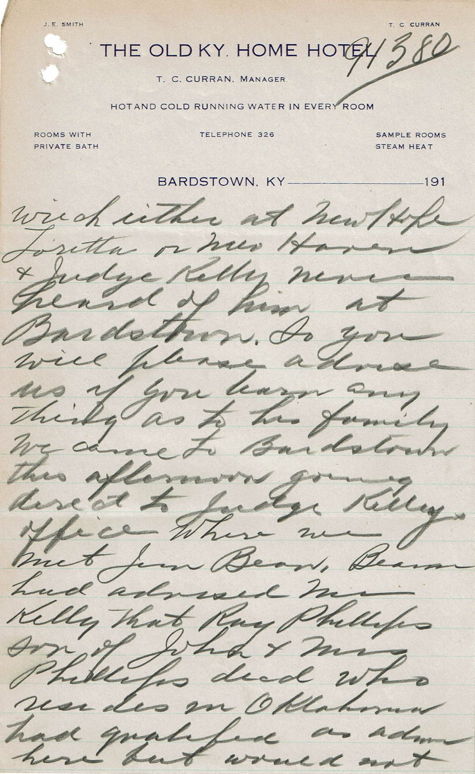 J. E. SMITH
T. C. CURRAN
THE OLD KY. HOME HOTEL
94380
T. C. CURRAN, MANAGER
HOT AND COLD RUNNING WATER IN EVERY ROOM
ROOMS WITH
PRIVATE BATH
TELEPHONE 326
SAMPLE ROOMS
STEAM HEAT
BARDSTOWN, KY 191
either at New Hope
Loretta or New Haven
& Judge Kelly never
heard of him at
Bardstown. So you
will please advise
us if you learn any
thing as to his family
We came to Bardstown
this afternoon going
direct to Judge Kellys
office where we
met Jim Beam. Beam
had advised Mr
Kelly that Ray Phillips
son of John & Mrs
Phillips decd who
resides in Oklahoma
had qualified as admr
here but would not